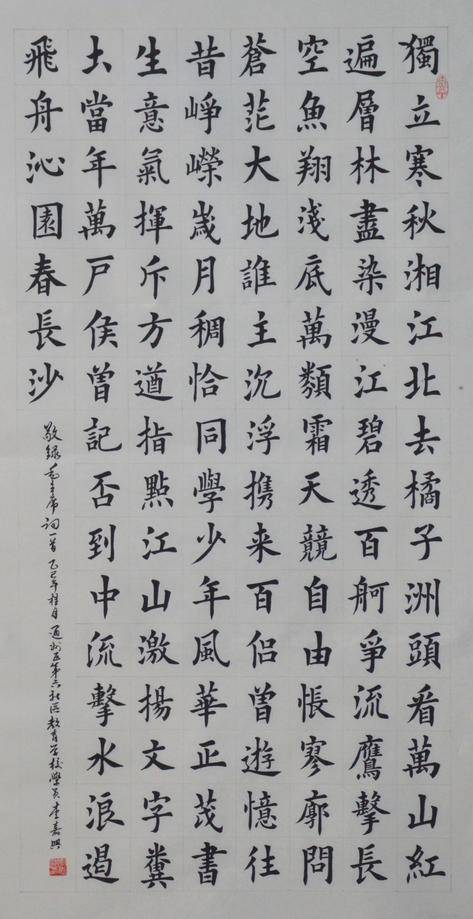 獨立寒秋湘江北去橘子洲頭看萬山紅
遍層林盡染漫江碧透百舸爭流鷹擊長
空魚翔淺底萬類霜天競自由悵寥廓問
蒼茫大地誰主沉浮携来百侶曾遊憶往
昔崢嶸歲月稠恰同學少年風華正茂書
生意氣揮斥方遒指點江山激揚文字糞
土當年萬戶侯曾記否到中流擊水浪遏
飛舟沁園春長沙
敬錄毛主席词一首乙巳年桂月通州区第六社區教育学校學员李嘉興